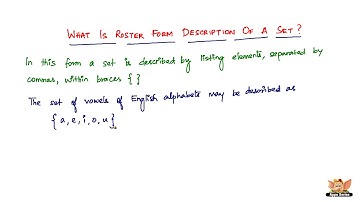 What Is Roster Form Description Of A Set?
In this form a set is described by listing elements, separated by
commas, within braces { }
The set of vowels of English alphabets may be described as
{ a, e, i, o, u }